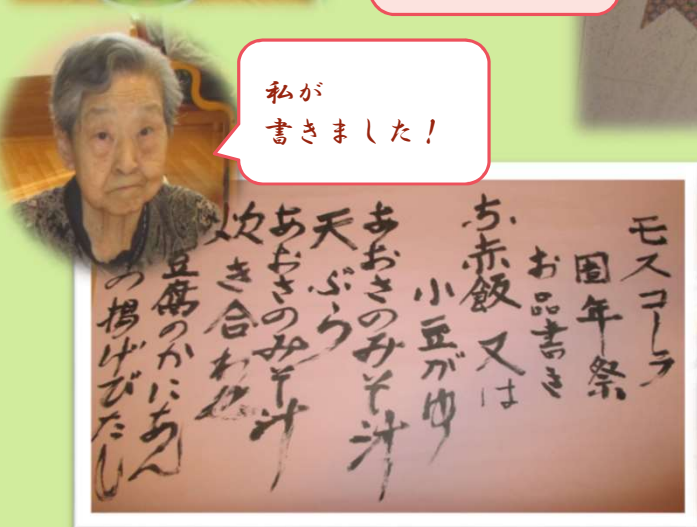 私が
書きました！
モスコーラ
周年祭
お品書き
お赤飯 又は
小豆がゆ
あおさのみそ汁
天ぷら
あおさのみそ汁
炊き合わせ
豆腐のかにあん
の揚げびたし